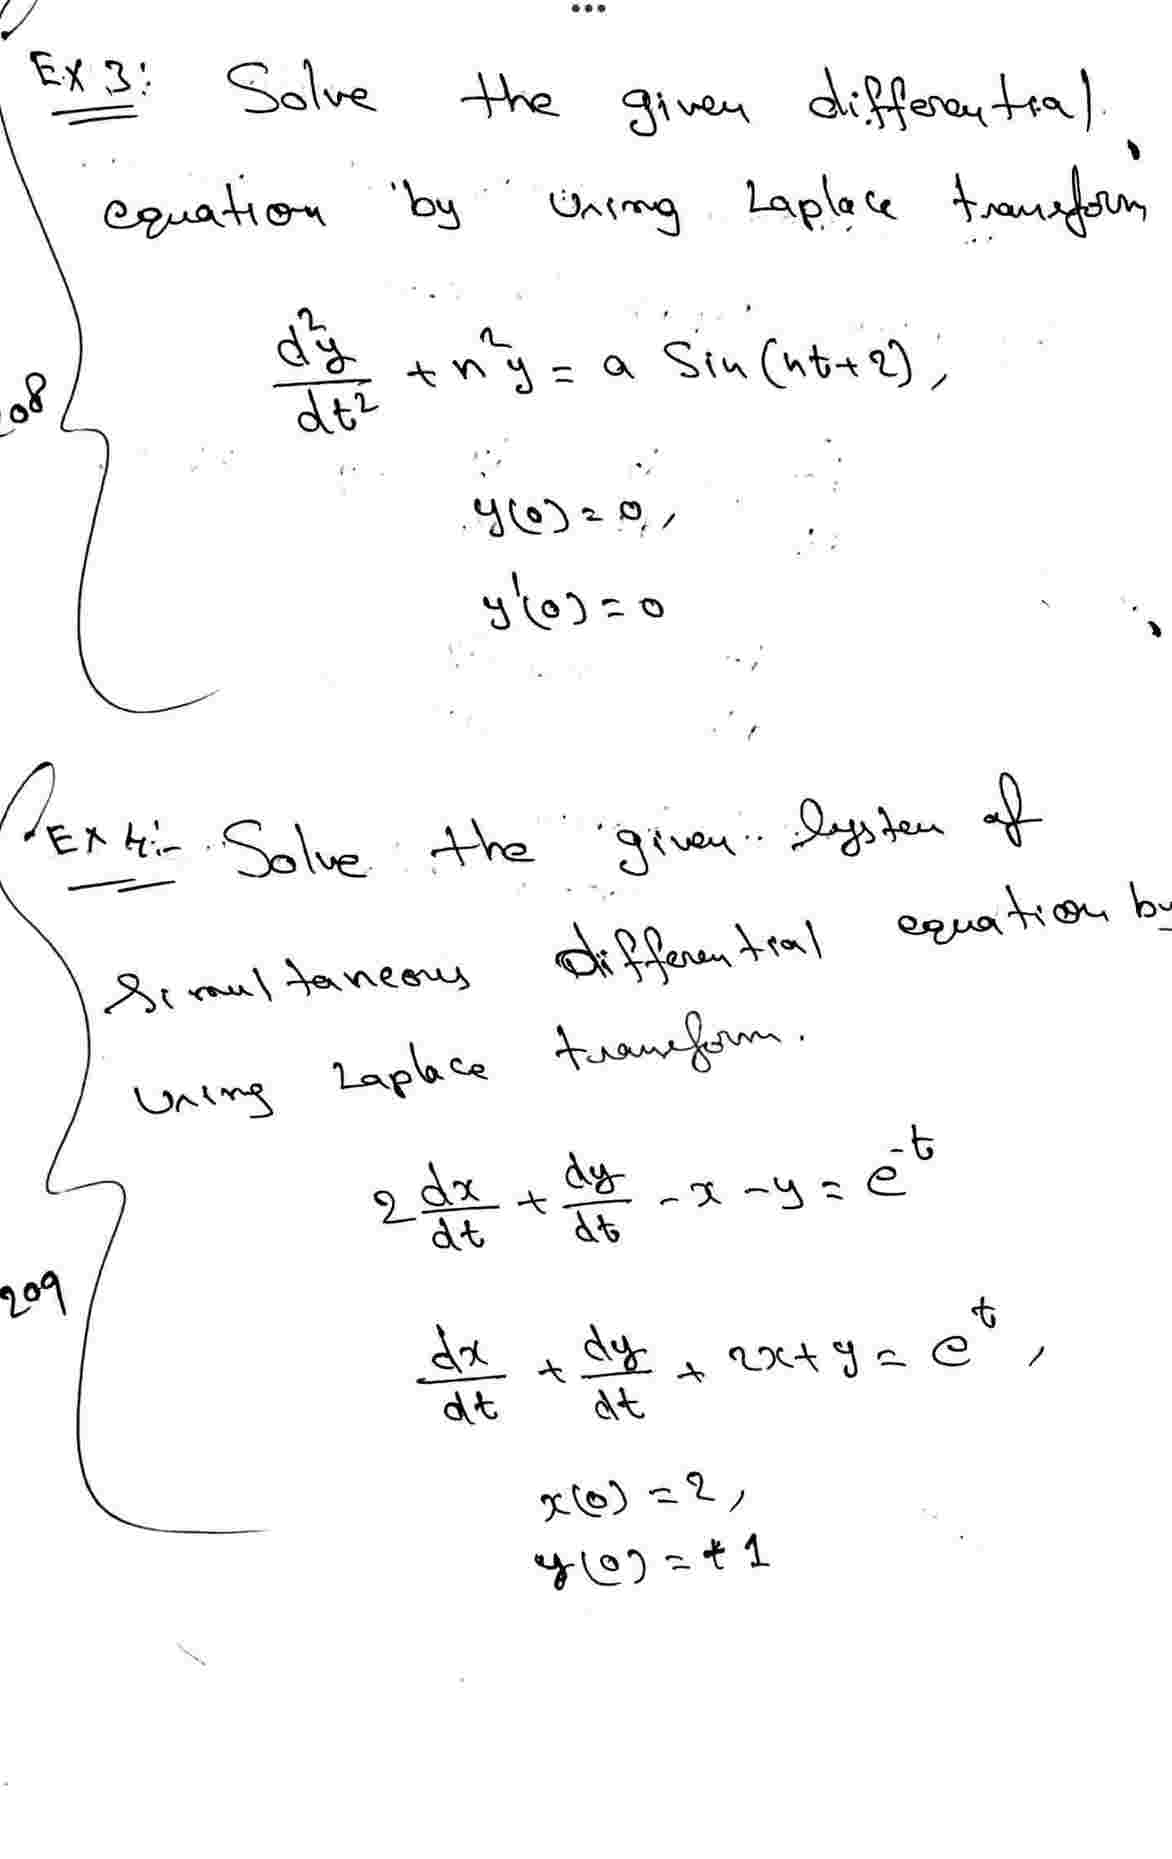 Ex 3: Solve the given differential
equation by using Laplace transform
d²y/dt² + n²y = a Sin(nt+2),
208
y(0) = 0,
y'(0) = 0
Ex 4:- Solve the given system of
simultaneous differential equation by
using Laplace transform.
2 dx/dt + dy/dt - x - y = e^-t
209
dx/dt + dy/dt + 2x + y = e^t,
x(0) = 2,
y(0) = +1